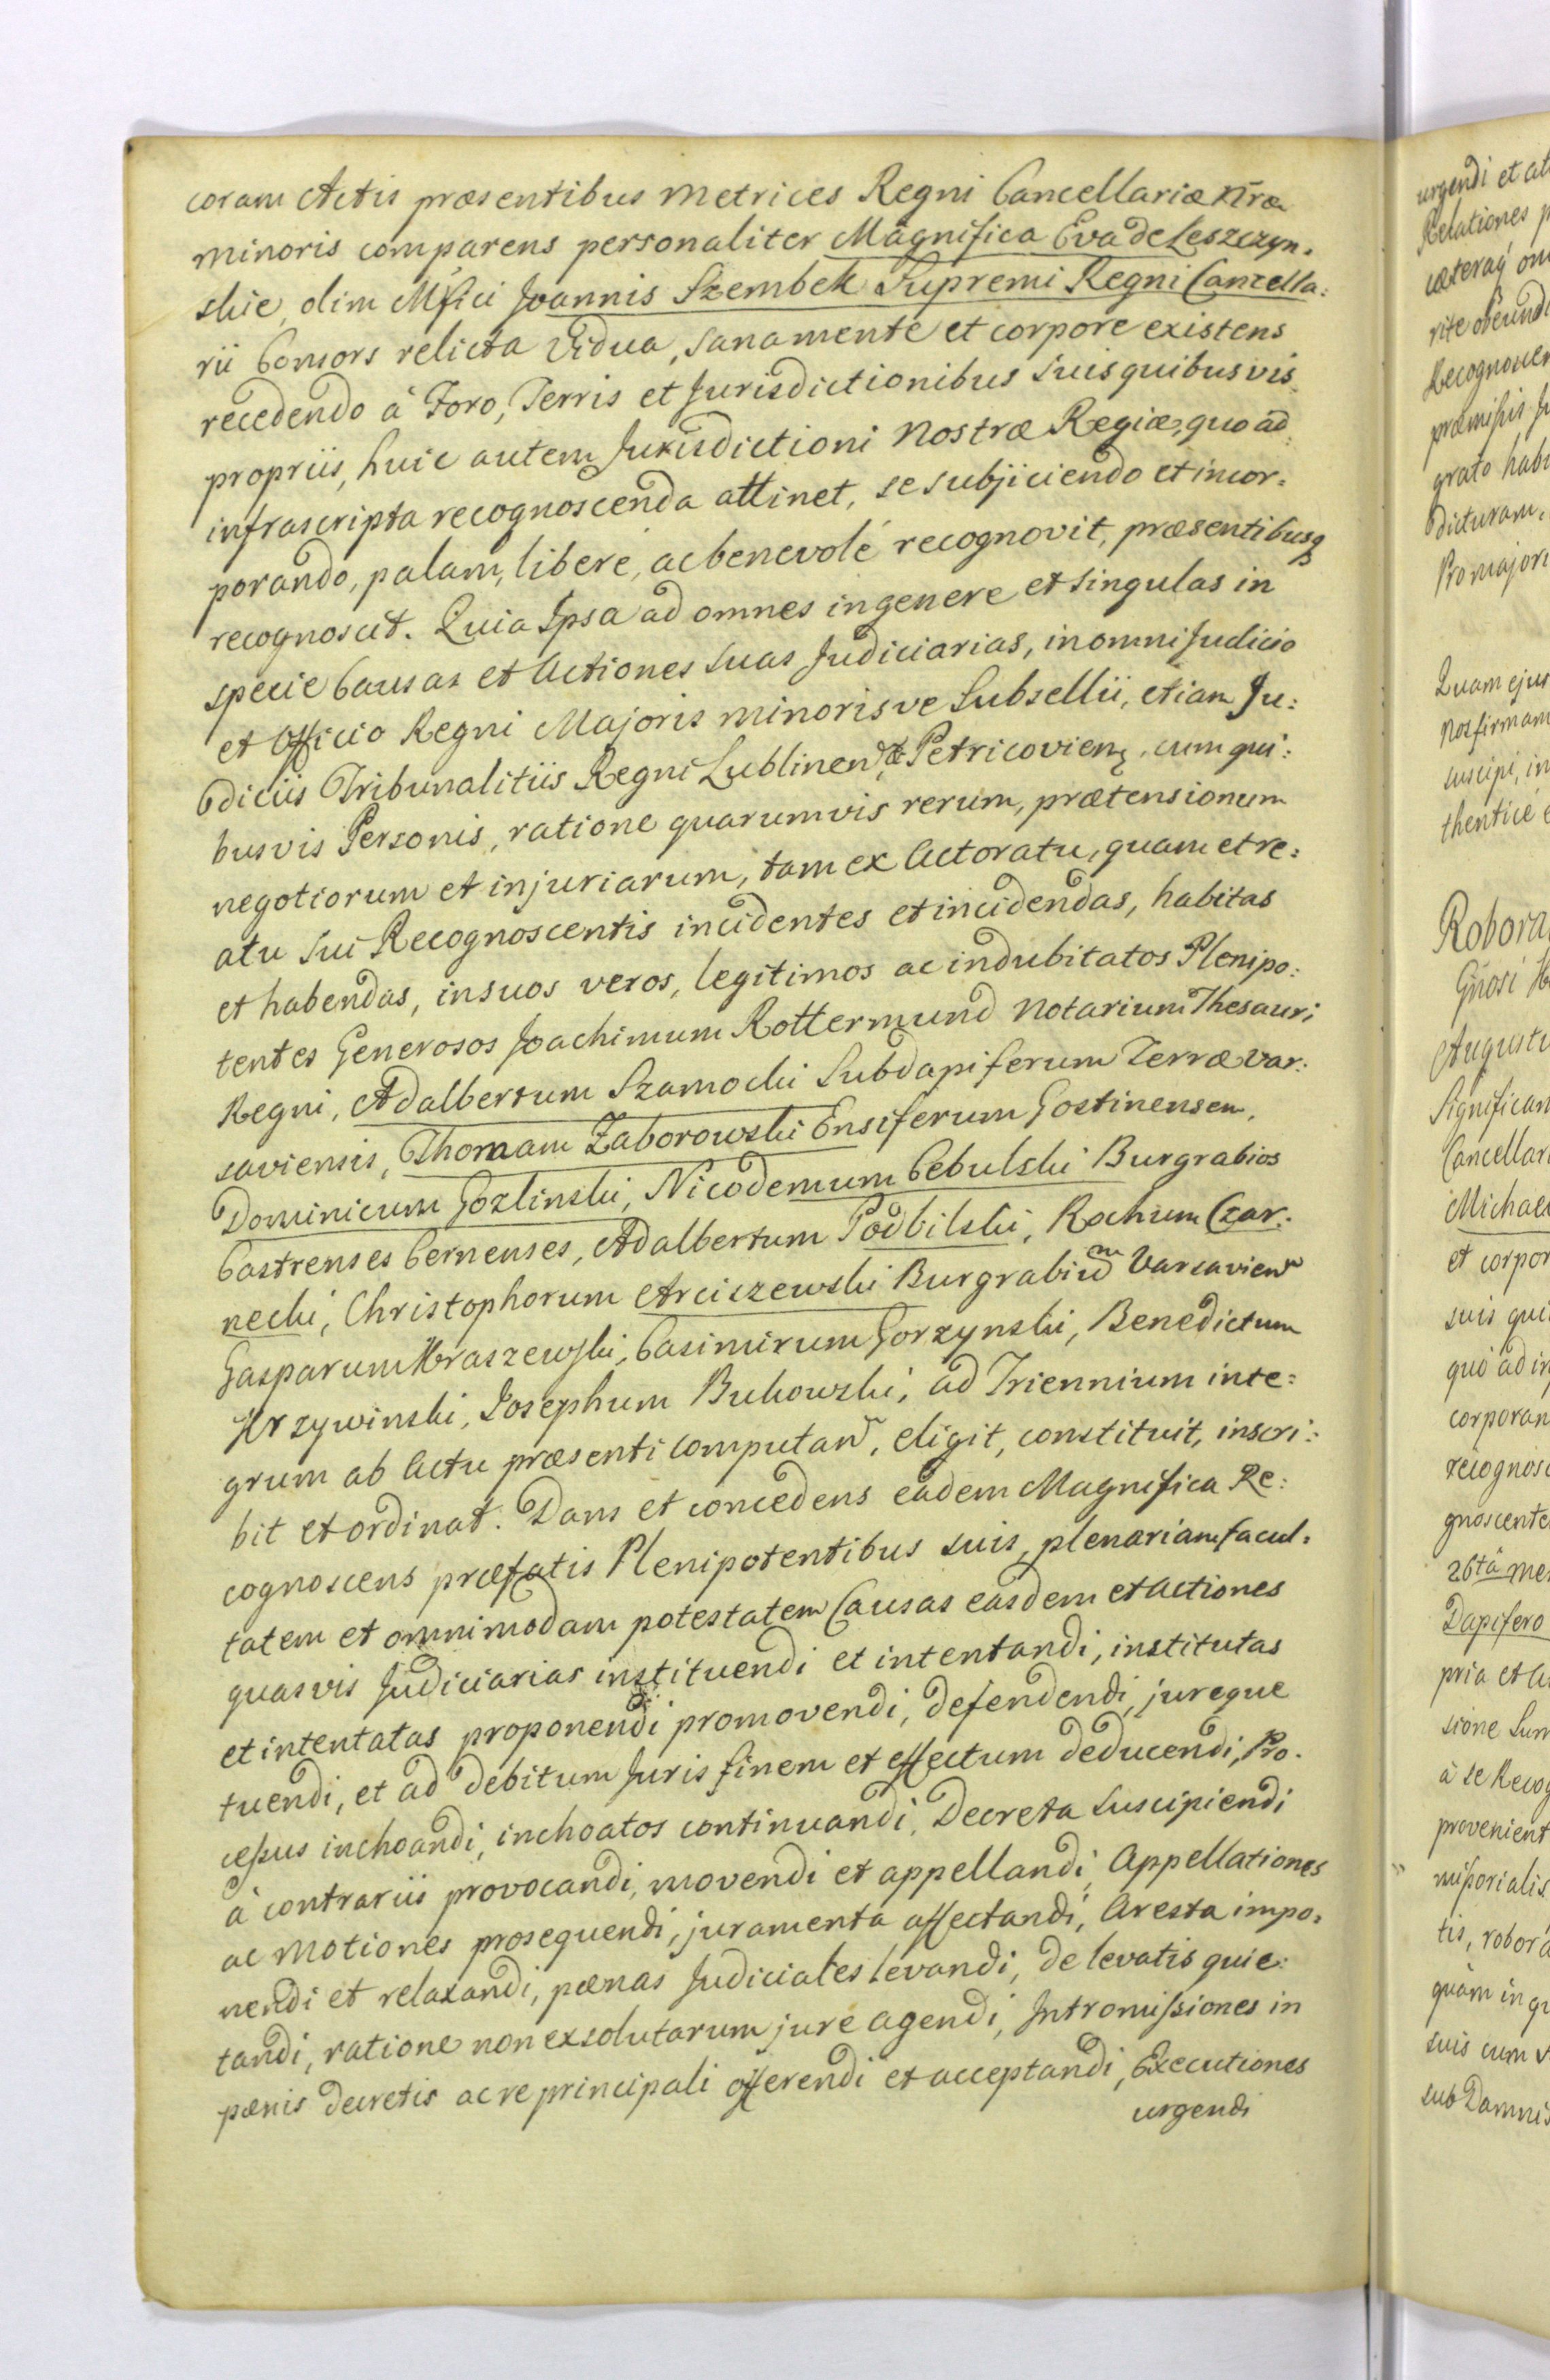 coram Actis præsentibus Metrices Regni Cancellariæ nr̄æ
minoris comparens personaliter Magnifica Eva de Leszczyn-
skie, olim Mfici Joannis Szembek Supremi Regni Cancella:
rii Consors relicta Vidua, sana mente et corpore existens
recedendo à Foro, Terris et Jurisdictionibus suis quibusvis
propriis, huic autem Jurisdictioni Nostræ Regiæ, quo ad
infrascripta recognoscenda attinet, se subjiciendo et incor:
porando, palam, libere, ac benevolé recognovit, præsentibusq
recognoscit. Quia Ipsa ad omnes in genere et singulas in
specie Causas et Actiones suas Judiciarias, in omni Judicio
et Officio Regni Majoris minorisve Subsellii, etiam Ju:
diciis Tribunalitiis Regni Lublinen̄ & Petricovien, cum qui:
busvis Personis, ratione quarumvis rerum, prætensionum
negotiorum et injuriarum, tam ex Actoratu, quam et re:
atu sui Recognoscentis incidentes et incidendas, habitas
et habendas, in suos veros, legitimos ac indubitatos Plenipo:
tentes Generosos Joachimum Rottermund Notarium Thesauri
Regni, Adalbertum Szamocki Subdapiferum Terræ Var:
saviensis, Thomam Zaborowski Ensiferum Gostinensem,
Dominicum Gozlinski, Nicodemum Cebulski Burgrabios
Castrenses Cernenses, Adalbertum Podbilski, Rochum Czar:
necki, Christophorum Arciszewski Burgrabium Varsavien̄
Gasparum Kraszewski, Casimirum Gorzynski, Benedictum
Krzywinski, Josephum Bukowski, ad Triennium inte:
grum ab Actu præsenti computan̄, eligit, constituit, inscri:
bit et ordinat. Dans et concedens eadem Magnifica Re:
cognoscens præfatis Plenipotentibus suis, plenariam facul:
tatem et omnimodam potestatem Causas easdem et Actiones
quasvis Judiciarias instituendi et intentandi, institutas
et intentatas proponendi promovendi, defendendi, jureque
tuendi, et ad debitum Juris finem et effectum deducendi, Pro-
cessus inchoandi, inchoatos continuandi, Decreta suscipiendi
à contrariis provocandi, movendi et appellandi, Appellationes
ac Motiones prosequendi, juramenta affectandi, Aresta impo:
nendi et relaxandi, pœnas Judiciales levandi, de levatis quie:
tandi, ratione non exsolutarum jure agendi, Intromissiones in
pœnis decretis ac re principali offerendi et acceptandi, Executiones
urgendi
urgendi et
Relationes
cæteraq
Recogno
præmissis
grato
dicturam
Pro majori
Quam ejus
nos firmam
suscipi, in
thentice
Robora
Gn̄osi
Augustu
Significan
Cancellar
Michae
et corpor
suis qui
quò ad in
corporan
recognos
gnoscente
26tâ me
Dapifero
pria et
sione Sum
à se Recog
provenient
tis, robora
quàm in
suis cum
sub Damnis